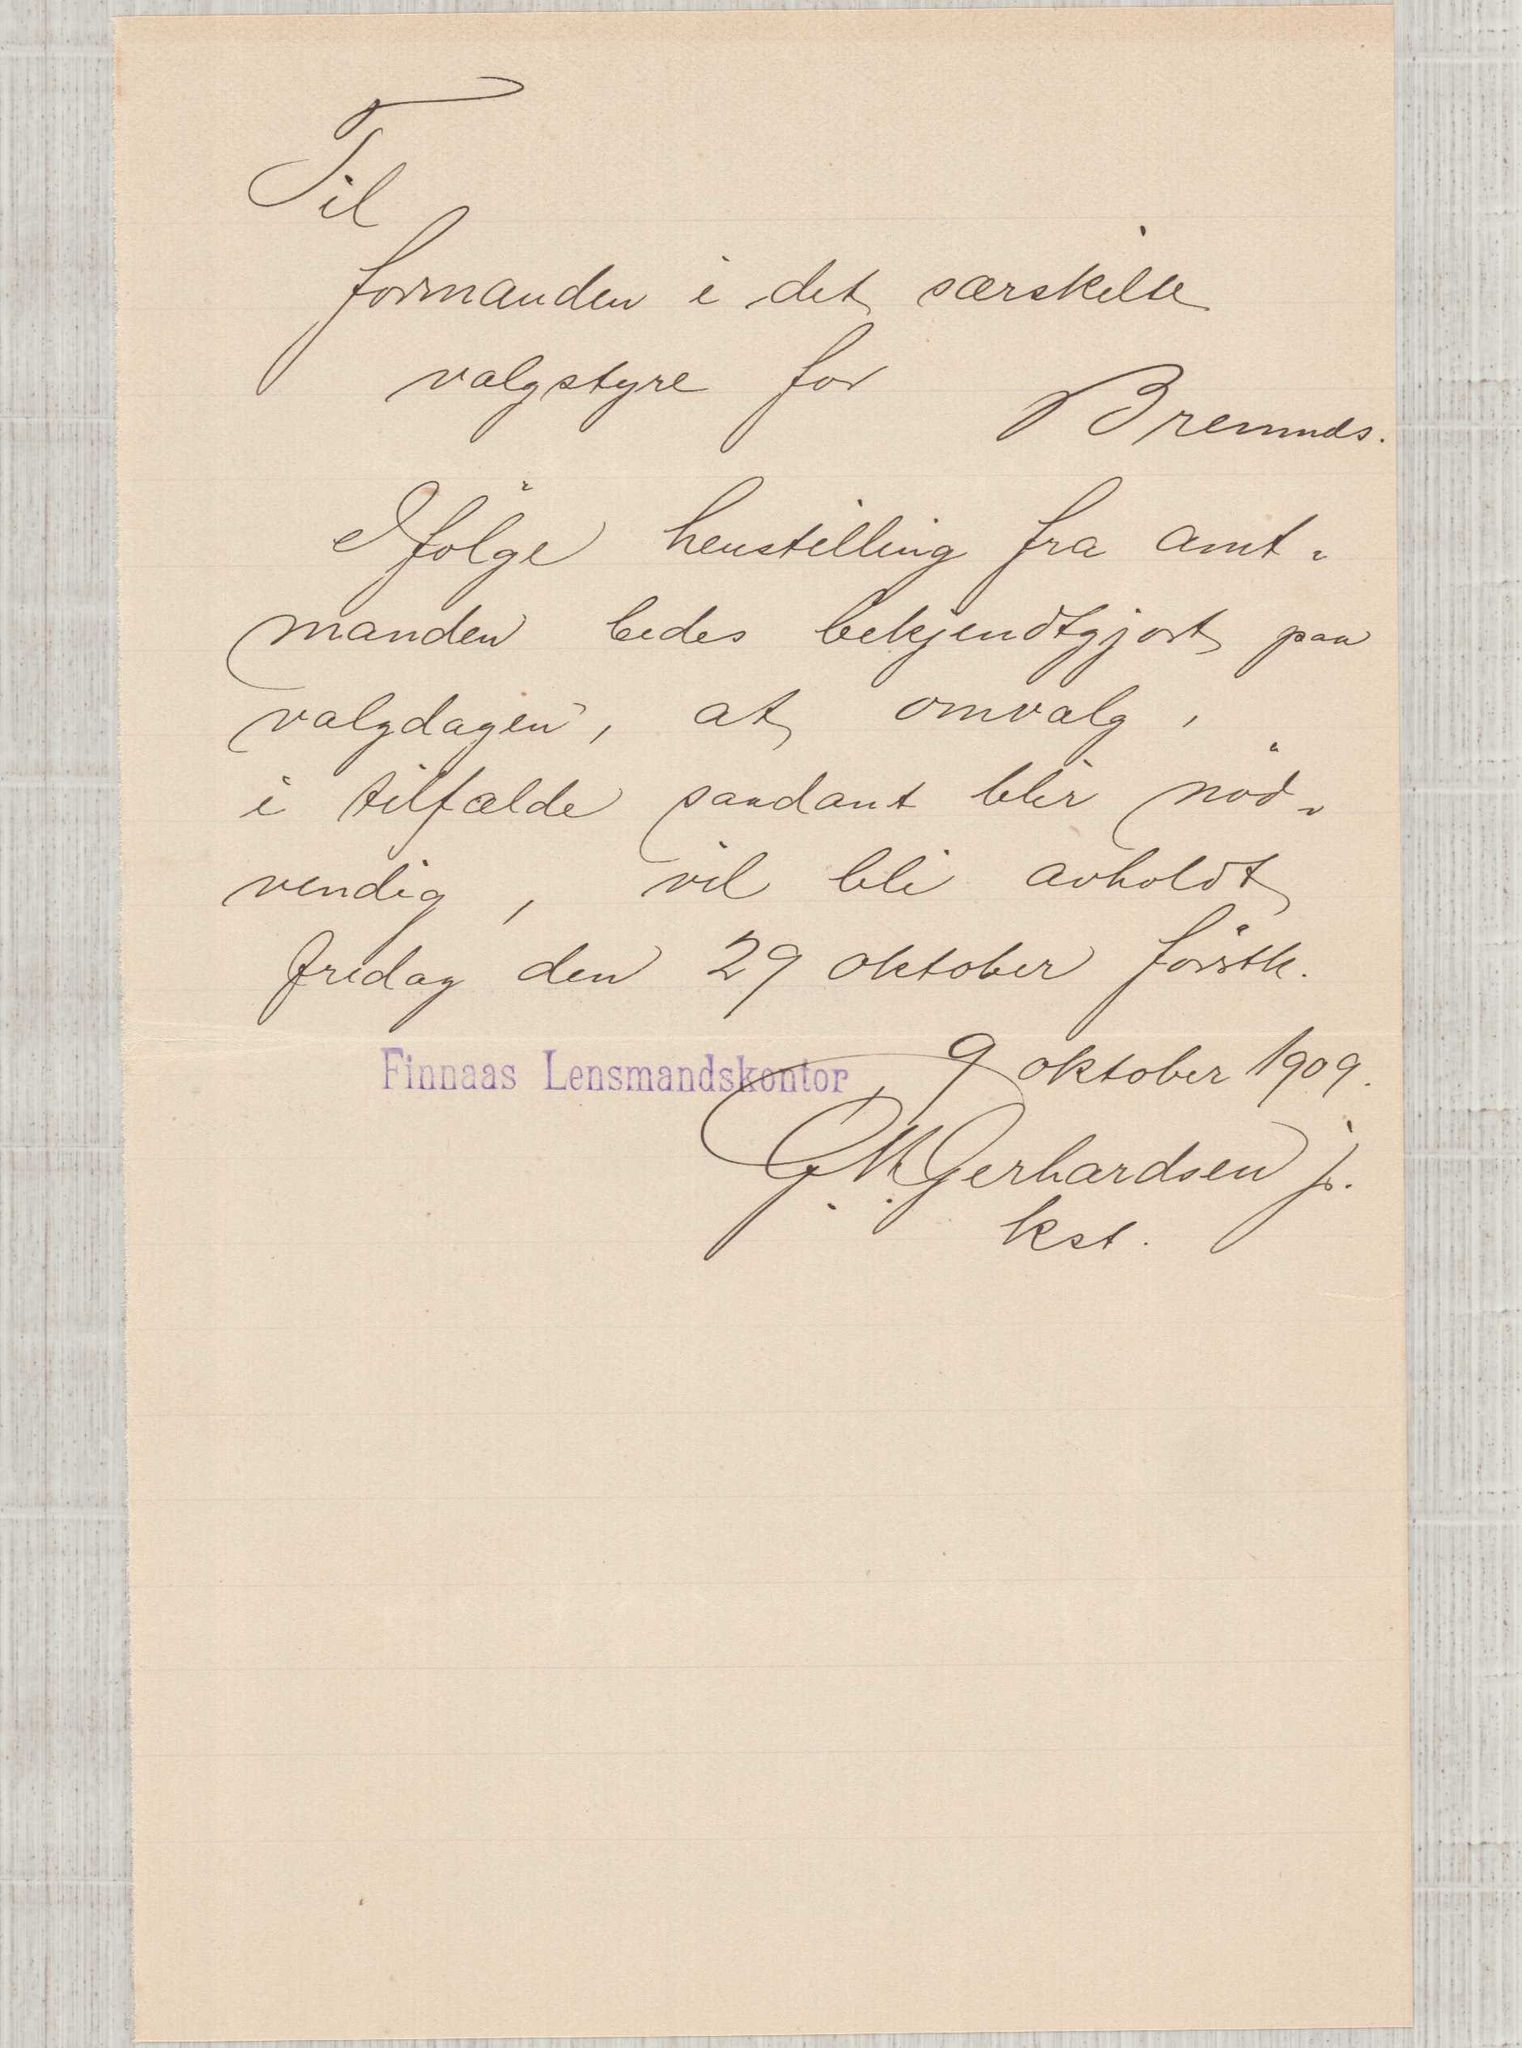 Til
formanden i det særskilte
valgstyre for
Bremnes.
Ifölge henstilling fra amt-
manden bedes bekjendtgjort paa
valgdagen, at omvalg,
i tilfælde saadant blir nöd-
vendig, vil bli avholdt
fredag den 29 oktober förstk.
Finnaas Lensmandskontor, 9 oktober 1909.
G. M. Gerhardsen jr.
kst.